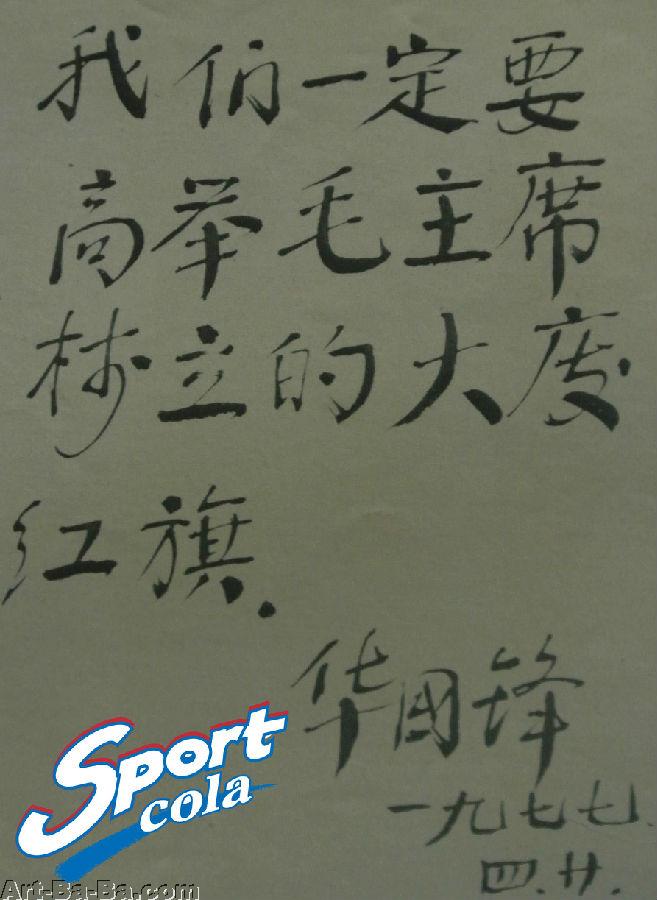 我们一定要
高举毛主席
树立的大庆
红旗.
华国锋
一九七七.
四.廿.
Sport
cola
Art-Ba-Ba.com